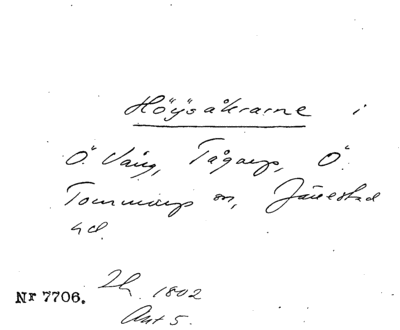 Höÿsåkrarne i
Ö. Vång, Tågarp, Ö.
Tommarps sn, Järrestad
hd.
Nr 7706. Lh. 1802
Akt 5.